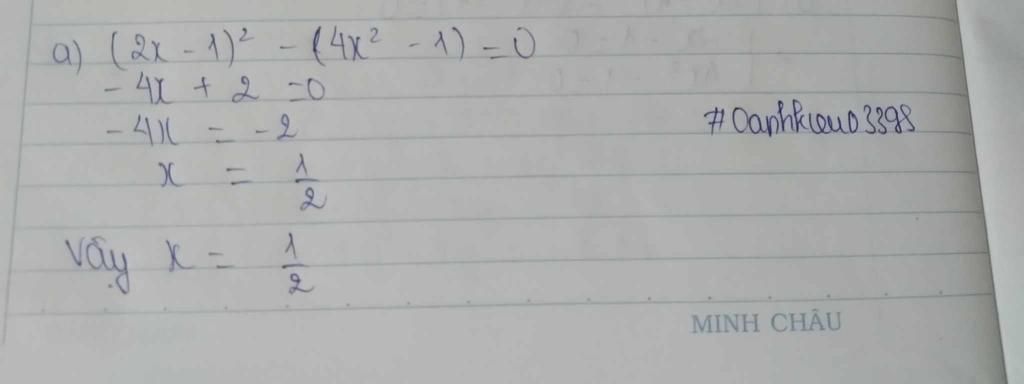 a) (2x - 1)² - (4x² - 1) = 0
- 4x + 2 = 0
- 4x = - 2
#Oanhkieu03398
x = 1/2
Vậy x = 1/2
MINH CHÂU